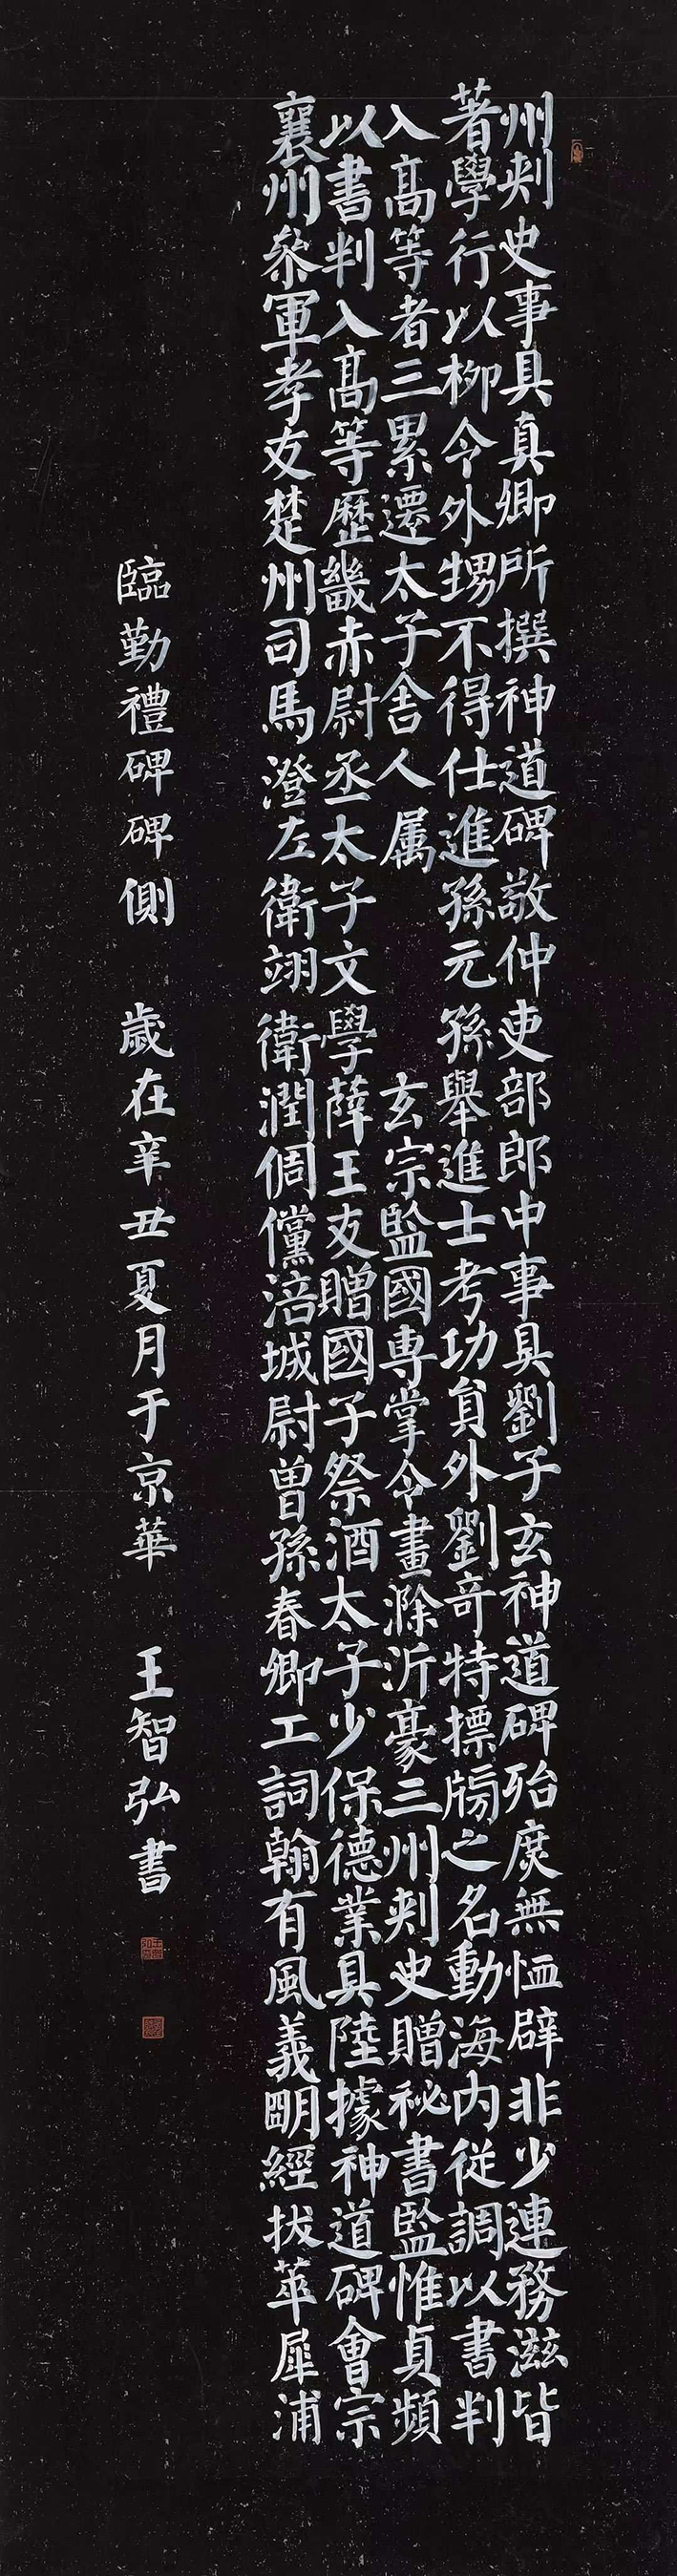 州刾史事具真卿所撰神道碑敬仲吏部郎中事具劉子玄神道碑殆庶無恤辟非少連務滋皆
著學行以柳令外甥不得仕進孫元孫舉進士考功貟外劉竒特摽牓之名動海内従調以書判
入髙等者三累遷太子舍人属玄宗監國専掌令畫滁沂豪三州刾史贈祕書監惟貞頻
以書判入髙等歴畿赤尉丞太子文學薛王友贈國子祭酒太子少保德業具陸據神道碑會宗
襄州叅軍孝友楚州司馬澄左衛翊衛潤倜儻涪城尉曽孫春卿工詞翰有風義明經拔萃犀浦
臨勤禮碑碑側 歲在辛丑夏月于京華 王智弘書